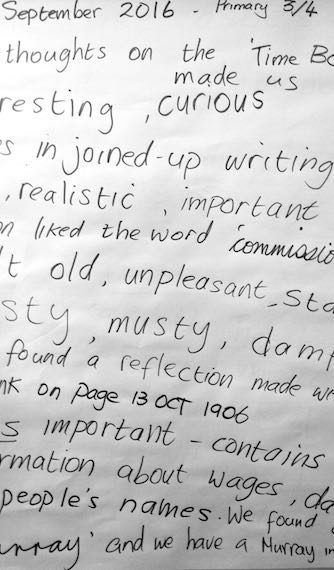 September 2016 - Primary 3/4
thoughts on the 'Time Bo
made us
resting, curious
s in joined-up writing
, realistic, important
n liked the word 'commissio
t old, unpleasant, sta
sty, musty, dam
found a reflection made w
nk on page 13 OCT 1906
s important - contains
rmation about wages, da
people's names. We found
urray' and we have a Murray in